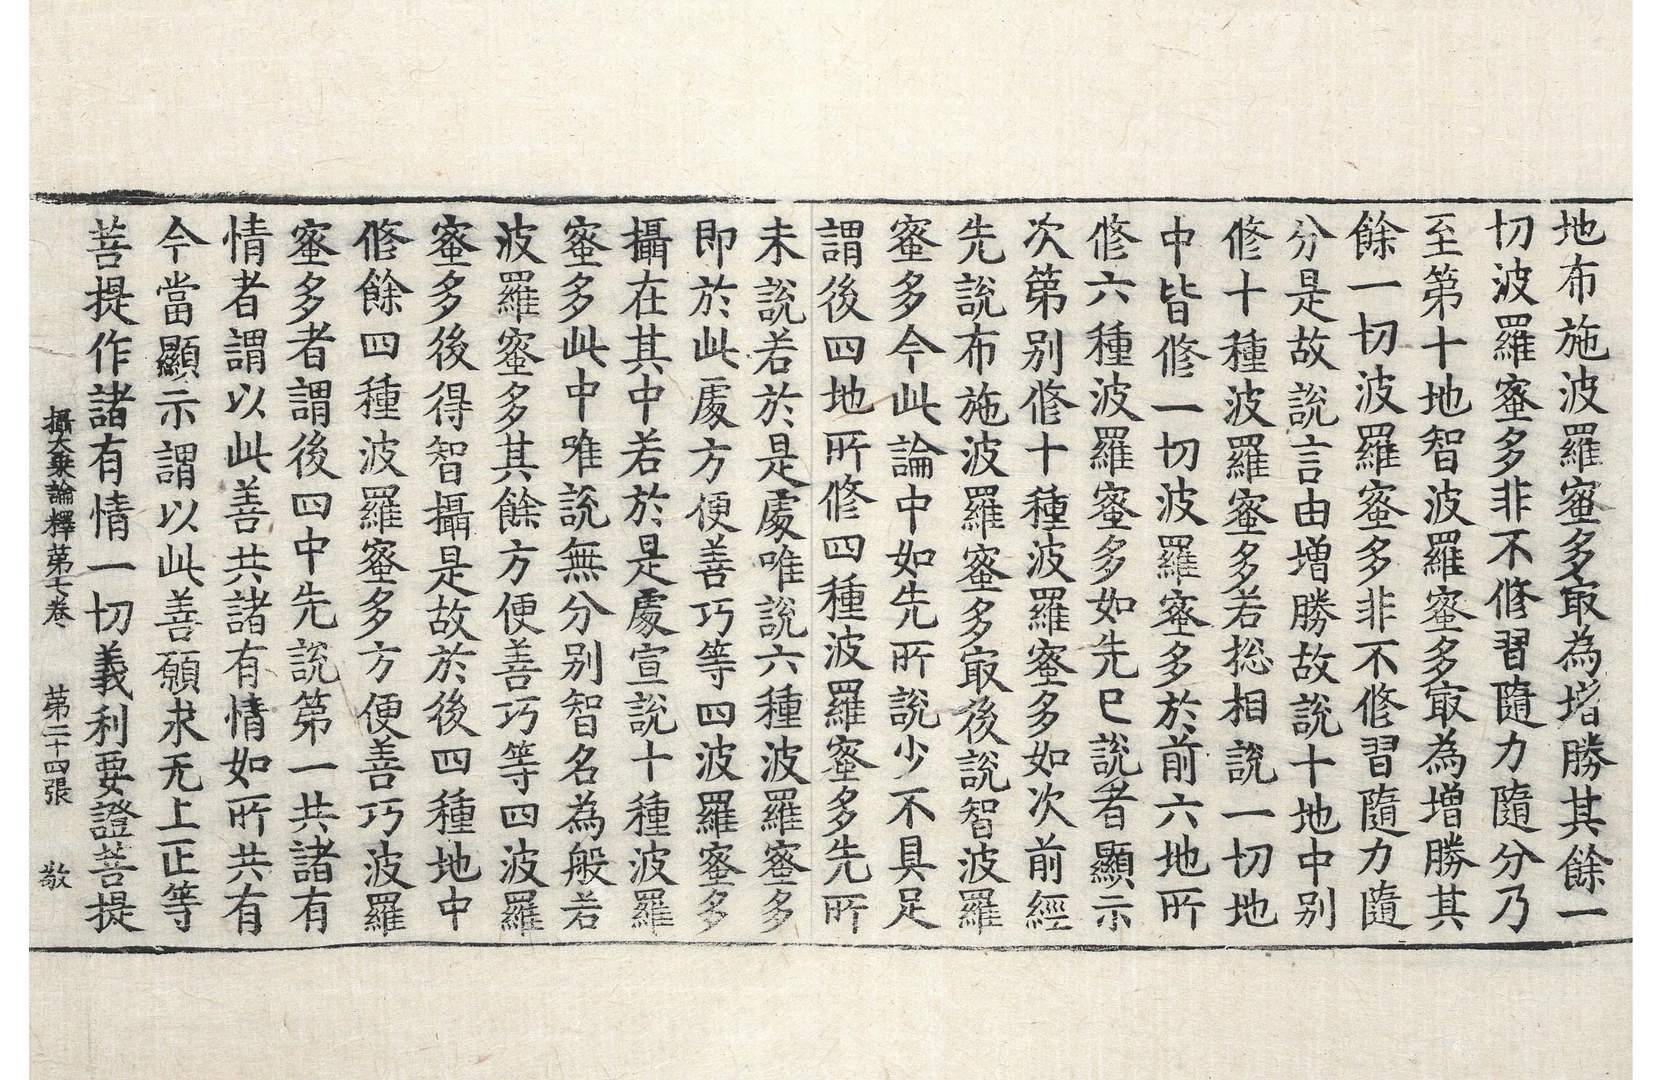 地布施波羅蜜多冣為增勝其餘一
切波羅蜜多非不修習隨力隨分乃
至第十地智波羅蜜多冣為增勝其
餘一切波羅蜜多非不修習隨力隨
分是故說言由增勝故說十地中別
修十種波羅蜜多若捴相說一切地
中皆修一切波羅蜜多於前六地所
修六種波羅蜜多如先已說者顯示
次第別修十種波羅蜜多如次前經
先說布施波羅蜜多冣後說智波羅
蜜多今此論中如先所說少不具足
謂後四地所修四種波羅蜜多先所
未說若於是處唯說六種波羅蜜多
即於此處方便善巧等四波羅蜜多
攝在其中若於是處宣說十種波羅
蜜多此中唯說無分別智名為般若
波羅蜜多其餘方便善巧等四波羅
蜜多後得智攝是故於後四種地中
修餘四種波羅蜜多方便善巧波羅
蜜多者謂後四中先說第一共諸有
情者謂以此善共諸有情如所共有
今當顯示謂以此善願求无上正等
菩提作諸有情一切義利要證菩提
攝大乗論釋第七卷 第二十四張 敬